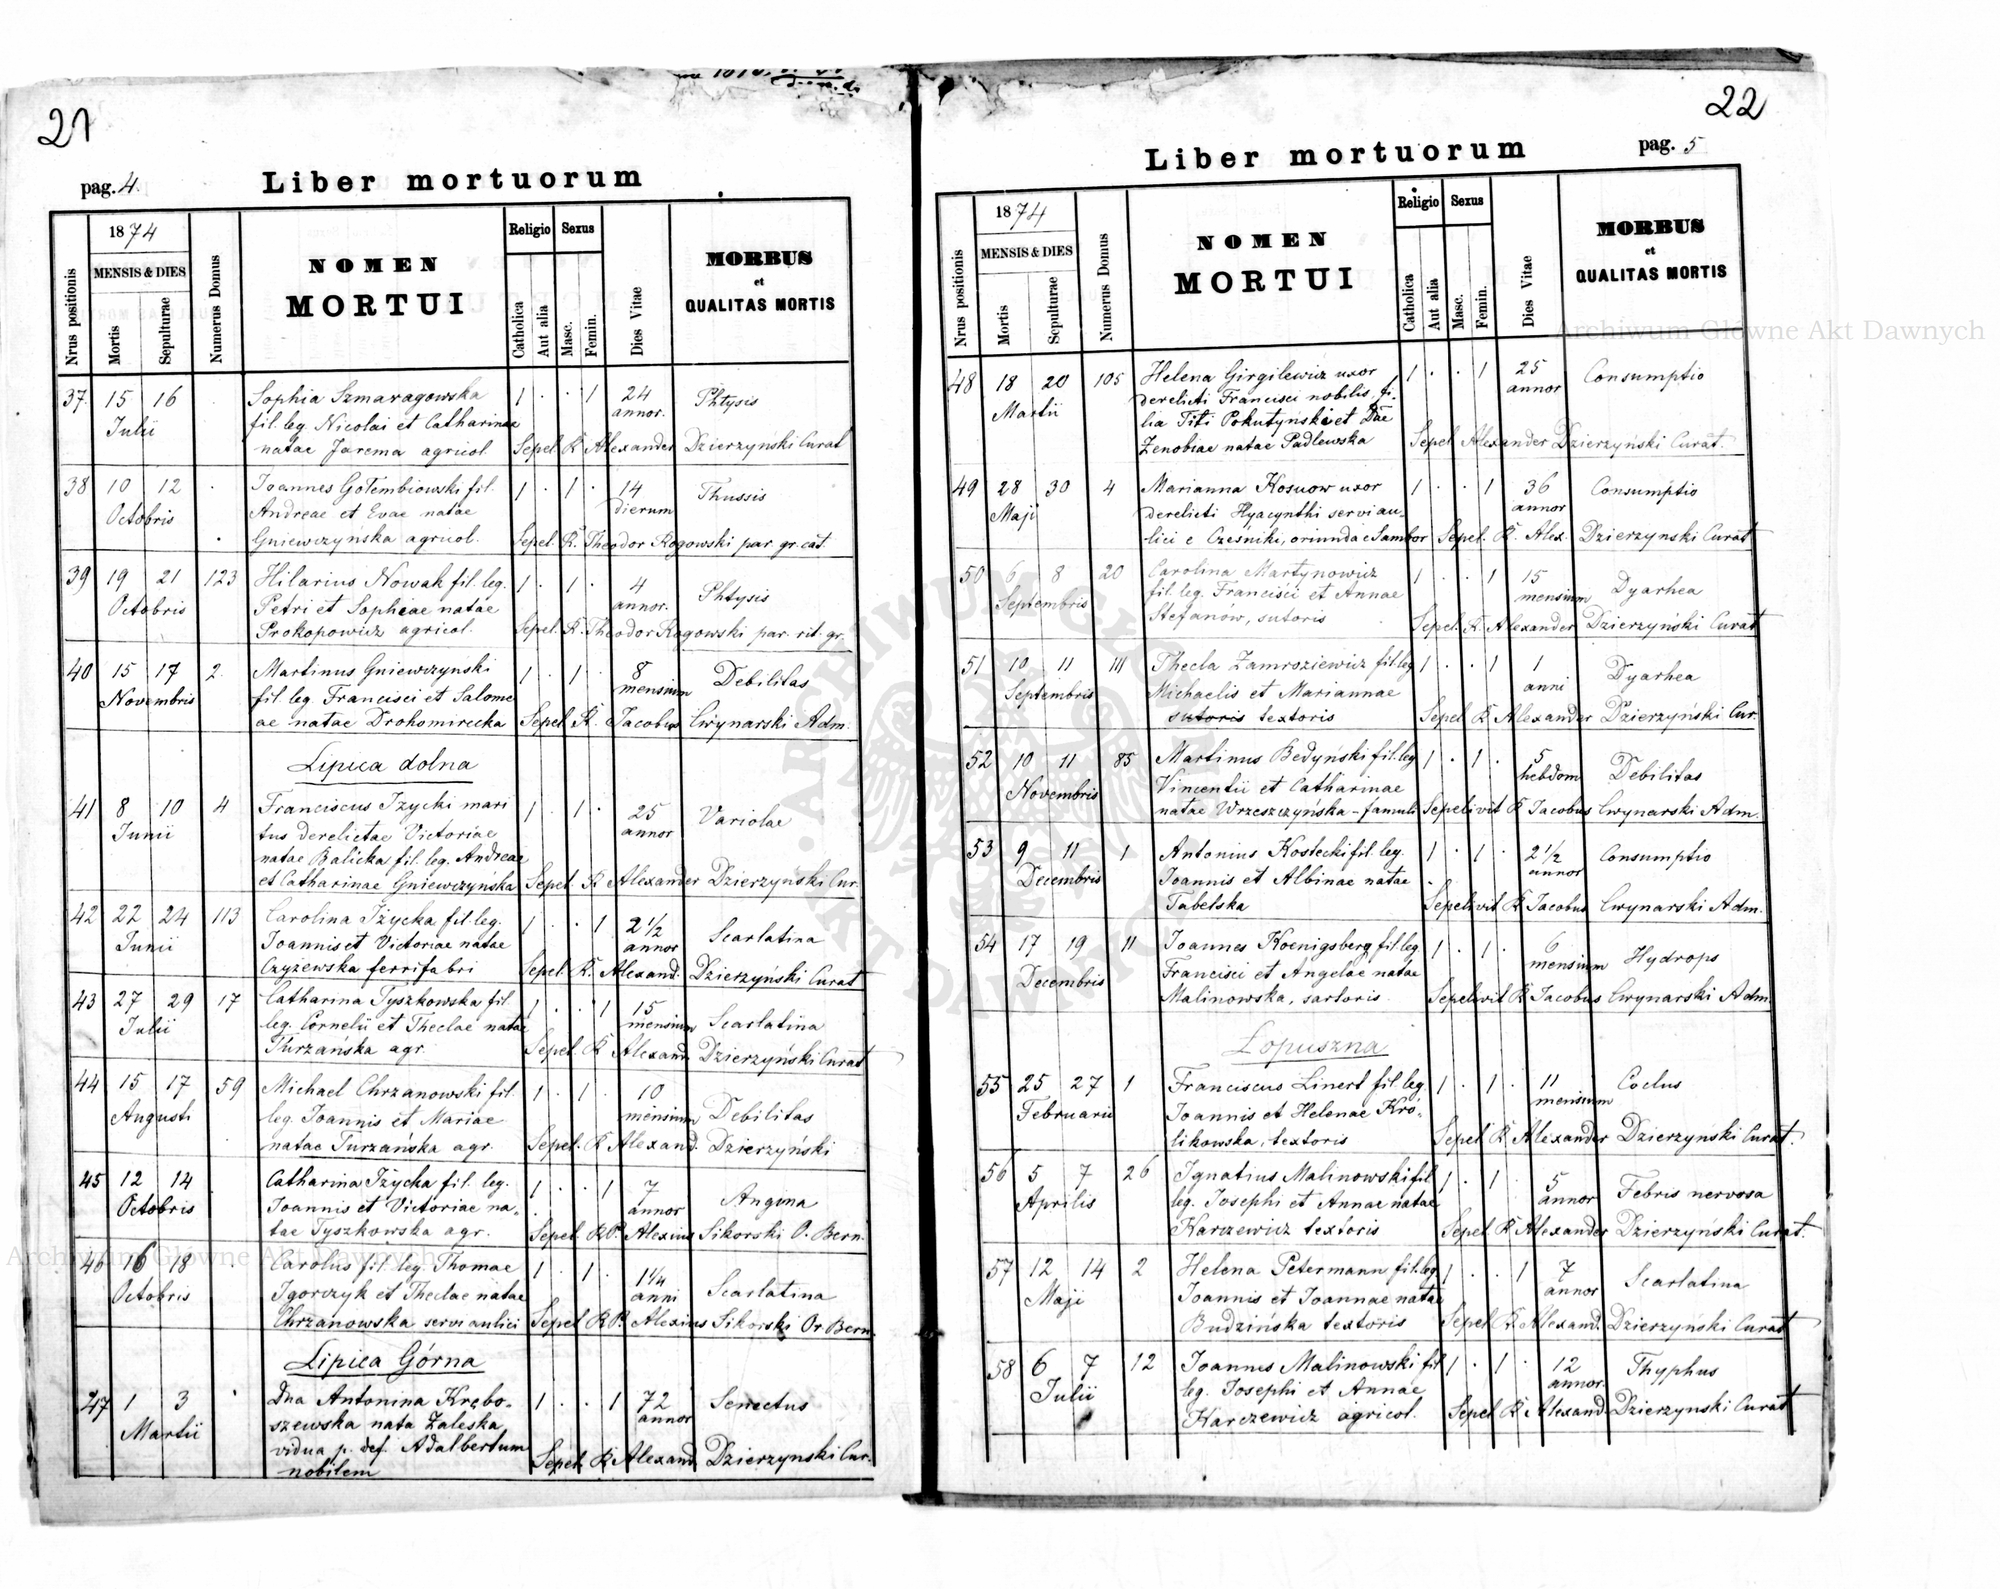 21
pag. 4.
Liber mortuorum
Nrus positionis
1874
MENSIS & DIES
Mortis
Sepulturae
Numerus Domus
NOMEN
MORTUI
Religio
Catholica
Aut alia
Sexus
Masc.
Femin.
Dies Vitae
MORBUS
et
QUALITAS MORTIS
37. 15 16 Sophia Szmaragowska 1 . . 1 24 Phtysis
Julii fil. leg. Nicolai et Catharinae annor.
natae Jarema agricol Sepel. R. Alexander Dzierzyński Curat
38 10 12 . Joannes Gołembiowski fil. 1 . 1 . 14 Thussis
Octobris Andreae et Evae natae dierum
Gniewczyńska agricol. Sepel. R. Theodor Rogowski par. gr. cat.
39 19 21 123 Hilarius Nowak fil. leg. 1 . 1 . 4 Phtysis
Octobris Petri et Sophiae natae annor.
Prokopowicz agricol. Sepel. R. Theodor Rogowski par. rit. gr.
40 15 17 2. Martinus Gniewczyński 1 . 1 . 8 Debilitas
Novembris fil. leg. Francisci et Salome mensium
ae natae Drohomirecka Sepel. R. Jacobus Cwynarski Adm.
Lipica dolna
41 8 10 4 Franciscus Izycki mari 1 . 1 . 25 Variolae
Junii tus derelictae Victoriae annor
natae Balicka fil. leg. Andreae
et Catharinae Gniewczyńska Sepel. R Alexander Dzierzyński Cur.
42 22 24 113 Carolina Iżycka fil. leg. 1 . . 1 2 1/2 Scarlatina
Junii Joannis et Victoriae natae annor
Czyżewska ferrifabri Sepel. R. Alexand. Dzierzyński Curat
43 27 29 17 Catharina Tyszkowska fil. 1 . . 1 15 Scarlatina
Julii leg. Cornelii et Theclae natae mensium
Turzańska agr. Sepel. R Alexand. Dzierzyński Curat
44 15 17 59 Michael Chrzanowski fil. 1 . 1 . 10 Debilitas
Augusti leg. Joannis et Mariae mensium
natae Turzańska agr. Sepel. R Alexand. Dzierzyński
45 12 14 Catharina Iżycka fil. leg. 1 . . 1 7 Angina
Octobris Joannis et Victoriae na- annor
tae Tyszkowska agr. Sepel. RP. Alexius Sikorski O. Bern.
46 16 18 . Carolus fil. leg. Thomae 1 . 1 . 1 1/4 Scarlatina
Octobris Igorczyk et Theclae natae anni
Chrzanowska servi aulici Sepel RP. Alexius Sikorski Or. Bern.
Lipica Górna
47 1 3 . Dna Antonina Krębo- 1 . . 1 72 Senectus
Martii szewska nata Zaleska annor
vidua p. def. Adalbertum
nobilem Sepel. R Alexand. Dzierzynski Cur.
22
Liber mortuorum
pag. 5
Nrus positionis
1874
MENSIS & DIES
Mortis
Sepulturae
Numerus Domus
NOMEN
MORTUI
Religio
Catholica
Aut alia
Sexus
Masc.
Femin.
Dies Vitae
MORBUS
et
QUALITAS MORTIS
48 18 20 105 Helena Girgilewicz uxor 1 . . 1 25 Consumptio
Martii derelicti Francisci nobilis, fi- annor
lia Titi Pokutyński et Dae
Zenobiae natae Padlewska Sepel Alexander Dzierzyński Curat.
49 28 30 4 Marianna Kosuow uxor 1 . . 1 36 Consumptio
Maji derelicti Hyacynthi servi au- annor
lici e Cześniki, oriunda e Sambor Sepel. R. Alex. Dzierzynski Curat
50 6 8 20 Carolina Martynowicz 1 . . 1 15 Dyarhea
Septembris fil. leg. Francisci et Annae mensium
Stefanów, sutoris Sepel. R. Alexander Dzierzyński Curat
51 10 11 111 Thecla Zamroziewicz fil. leg 1 . . 1 1 Dyarhea
Septembris Michaelis et Mariannae anni
sutoris textoris Sepel R Alexander Dzierzyński Cur.
52 10 11 85 Martinus Bedyński fil. leg 1 . 1 . 5 Debilitas
Novembris Vincentii et Catharinae hebdom
natae Wrzeszczyńska - famuli Sepelivit R Jacobus Cwynarski Adm.
53 9 11 1 Antonius Kostecki fil. leg. 1 . 1 . 2 1/2 Consumptio
Decembris Joannis et Albinae natae annor
Tabelska Sepelivit R Jacobus Cwynarski Adm.
54 17 19 11 Joannes Koenigsberg fil. leg 1 . 1 . 6 Hydrops
Decembris Francisci et Angelae natae mensium
Malinowska, sartoris. Sepelivit R Jacobus Cwynarski Adm.
Lopuszna
55 25 27 1 Franciscus Linert fil. leg. 1 . 1 . 11 Coclus
Februarii Joannis et Helenae Kró- mensium
likowska, textoris Sepel R. Alexander Dzierzyński Curat.
56 5 7 26 Ignatius Malinowski fil 1 . 1 . 5 Febris nervosa
Aprilis leg. Josephi et Annae natae annor
Harczewicz textoris Sepel. R Alexander Dzierzyński Curat.
57 12 14 2 Helena Petermann fil. leg. 1 . . 1 7 Scarlatina
Maji Joannis et Joannae natae annor
Budzińska textoris Sepel R. Alexand. Dzierzyński Curat
58 6 7 12 Joannes Malinowski fil 1 . 1 . 12 Thyphus
Julii leg. Josephi et Annae annor.
Harczewicz agricol. Sepel R Alexand. Dzierzynski Curat
Archiwum Główne Akt Dawnych
Archiwum Główne Akt Dawnych
ARCHIWUM GŁÓWNE AKT DAWNYCH